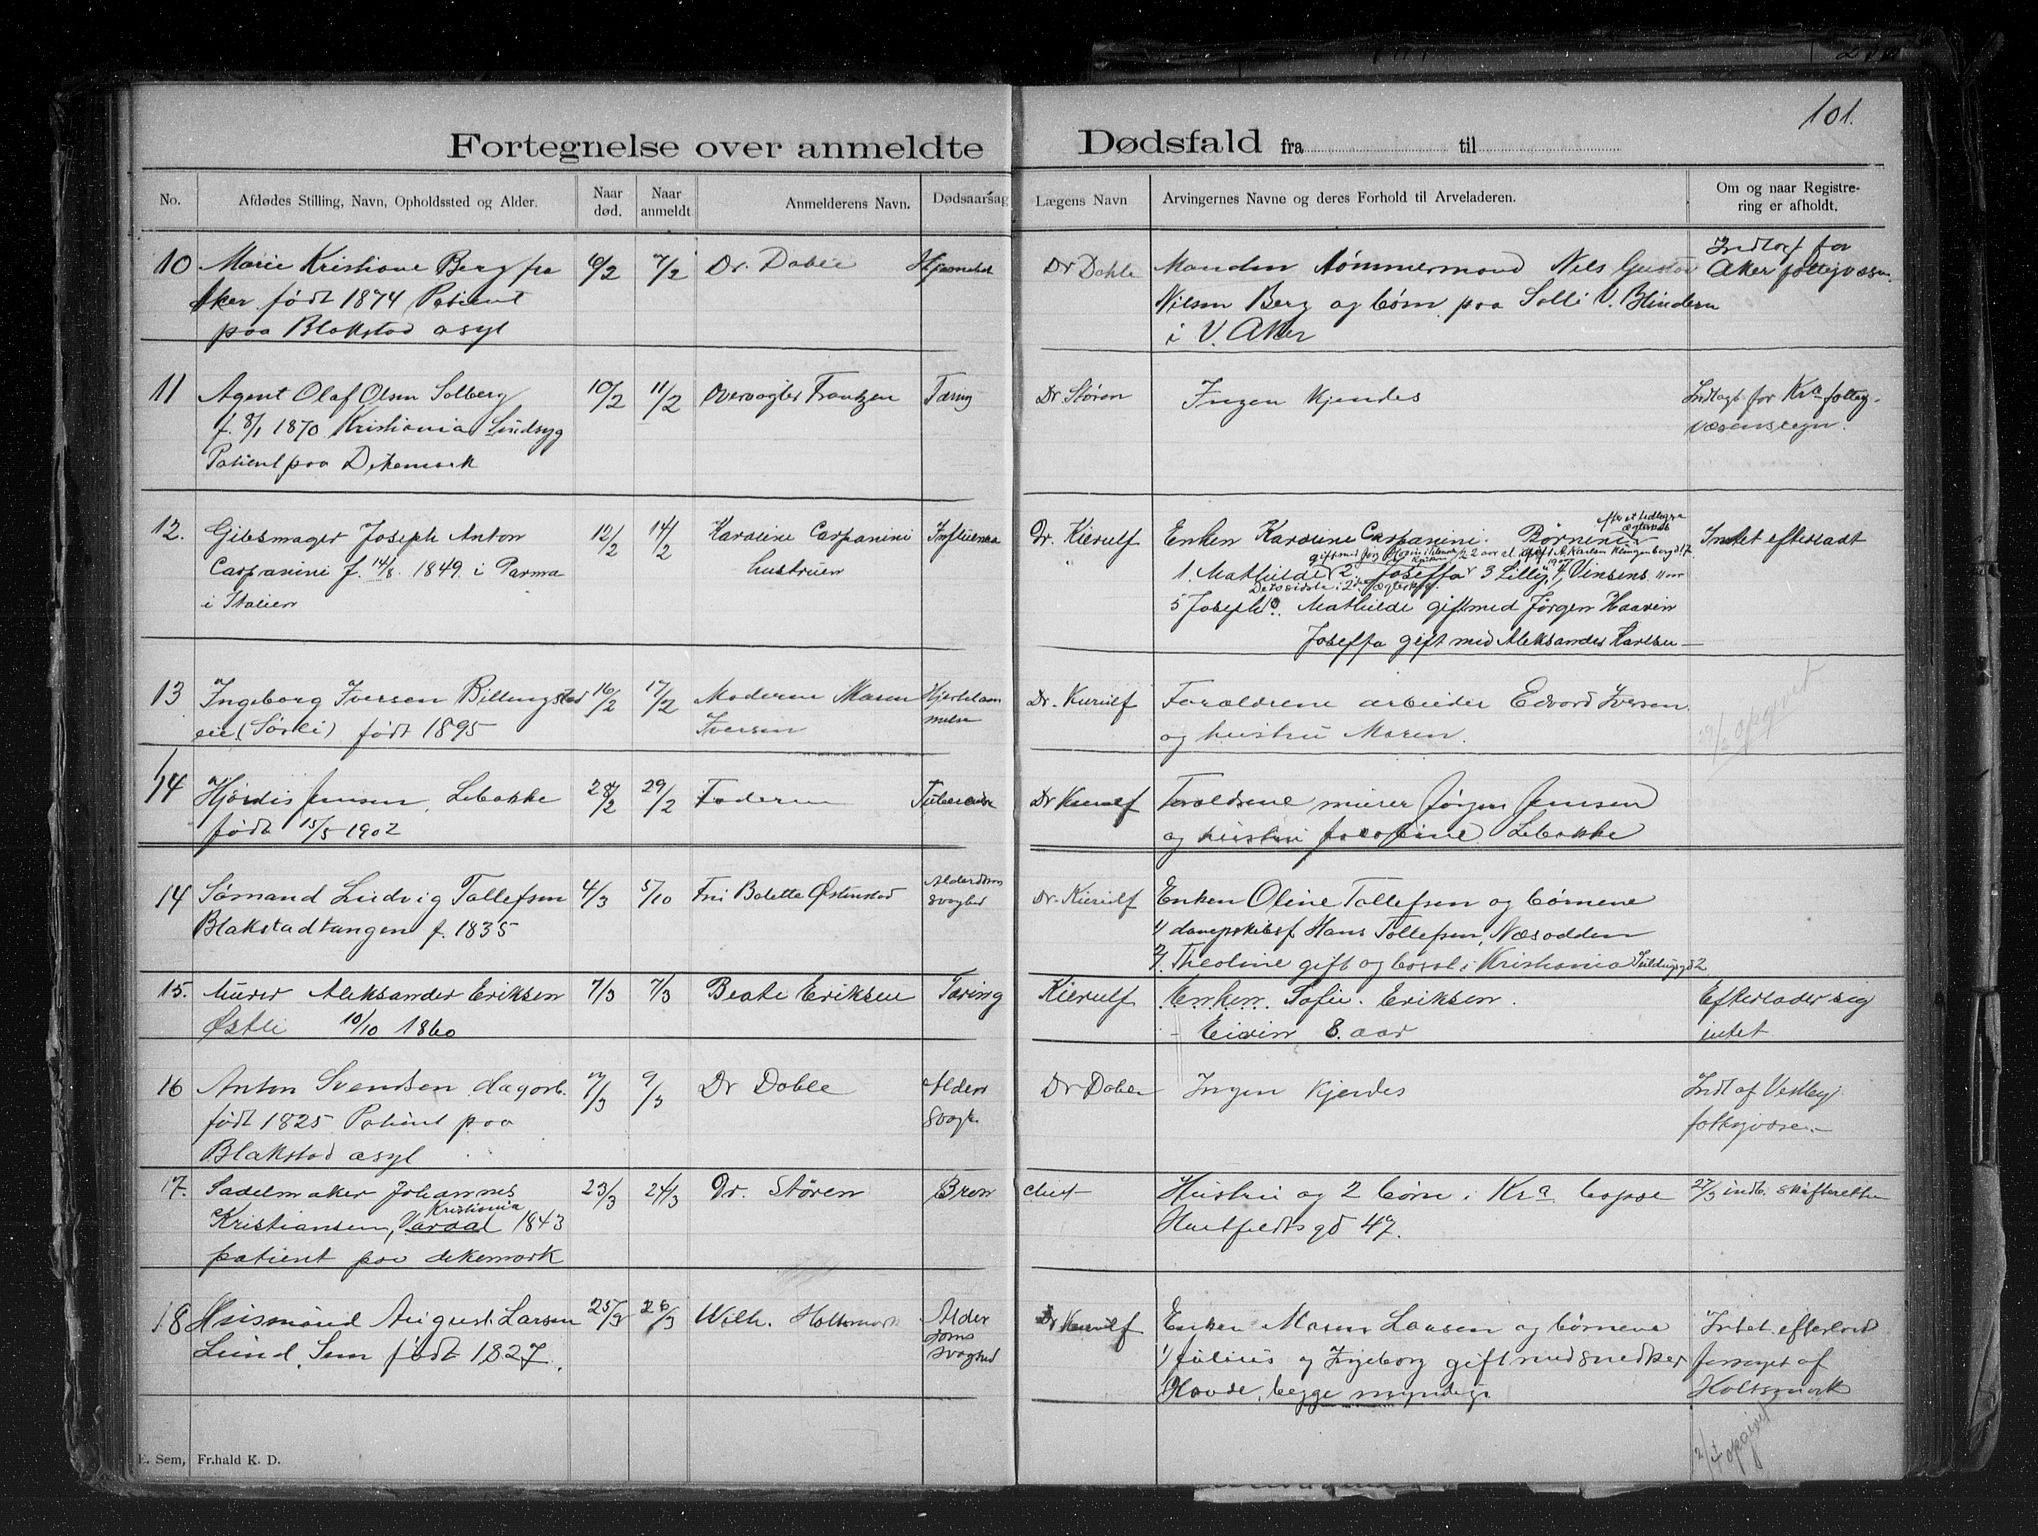 101.
Fortegnelse over anmeldte Dødsfald fra til
No.
Afdødes Stilling, Navn, Opholdssted og Alder.
Naar død.
Naar anmeldt
Anmelderens Navn.
Dødsaarsag
Lægens Navn
Arvingernes Navne og deres Forhold til Arveladeren.
Om og naar Registre-
ring er afholdt.
10 Marie Kristiane Berg fra 6/2 7/2 Dr. Doble
Aker født 1874 Patient
paa Blakstad asyl
Dr Doble Manden Tømmermand Nils Gustav
Nilsen Berg og børn paa Solli V. Blindern
i V. Aker
Indlagt for
Aker fattigvæsen
11 Agent Olaf Olsen Solberg 10/2 11/2 Overvogter Frantzen Tæring
f. 8/1 1870 Kristiania Sindsyg
Patient paa Dikemark
Dr Støren Ingen Kjendes
Indlagt for Kra fattig-
væsensregn.
12. Gibsmager Joseph Anton 12/2 14/2 Karoline Carpanini Influensa
Carpanini f. 14/8 1849 i Parma hustruen
i Italien
Dr. Kierulf Enken Karoline Carpanini. Børnene
1 Mathilde 2 Joseffa 3 Lilly 4 Vinsens
5 Joseph. Mathilde gift med Jørgen Haavin
Joseffa gift med Aleksander Karlsen
Intet efterladt
13 Ingeborg Iversen Billingstad 16/2 17/2 Moderen Maren Hjertelam
eie (Sørli) født 1895 Iversen melse
Dr. Kierulf Forældrene arbeider Edvard Iversen
og hustru Maren.
opgivet
14 Hjørdis Jensen, Lebakke 28/2 29/2 Faderen Tuberculose
født 15/5 1902
Dr Kierulf Forældrene murer Jørgen Jensen
og hustru Josefine Lebakke
14 Sømand Ludvig Tollefsen 4/3 5/10 Fru Bolette Østenstad Alderdoms
Blakstadtangen f. 1835 svaghed
Dr. Kierulf Enken Oline Tollefsen og børnene
1/ dampskibsf Hans Tollefsen, Næsodden
2/. Theoline gift og bosat i Kristiania
15. Murer Aleksander Eriksen 7/3 7/3 Beate Eriksen Tæring
Østli 10/10 1860
Kierulf Enken Sofie Eriksen.
- Eivin 8. aar
Efterlader sig
intet
16 Anton Svendsen dagarb. 7/3 9/3 Dr Doble Alder
født 1825 Patient paa svagh
Blakstad asyl
Dr Doble Ingen Kjendes
Indt af Vestby
fattigvæsen
17. Sadelmaker Johannes 23/3 24/3 Dr. Støren
Kristiania
Kristiansen, 1843
patient paa dikemark
Hustru og 2 børn i Kra boppe
gd 47.
27/3 indb. skifteretten
18 Husmand August Larsen 25/3 26/3 Wilh. Holtsmark Alder
Lund, Sem født 1827. doms
svaghed
Dr Kierulf Enken Maren Larsen og børnene
1/ Julius og Ingeborg gift med snedker
Hovde, begge myndige
Intet efterladt
forsørget af
Holtsmark
2/4 opgivet
E. Sem, Fr.hald K. D.